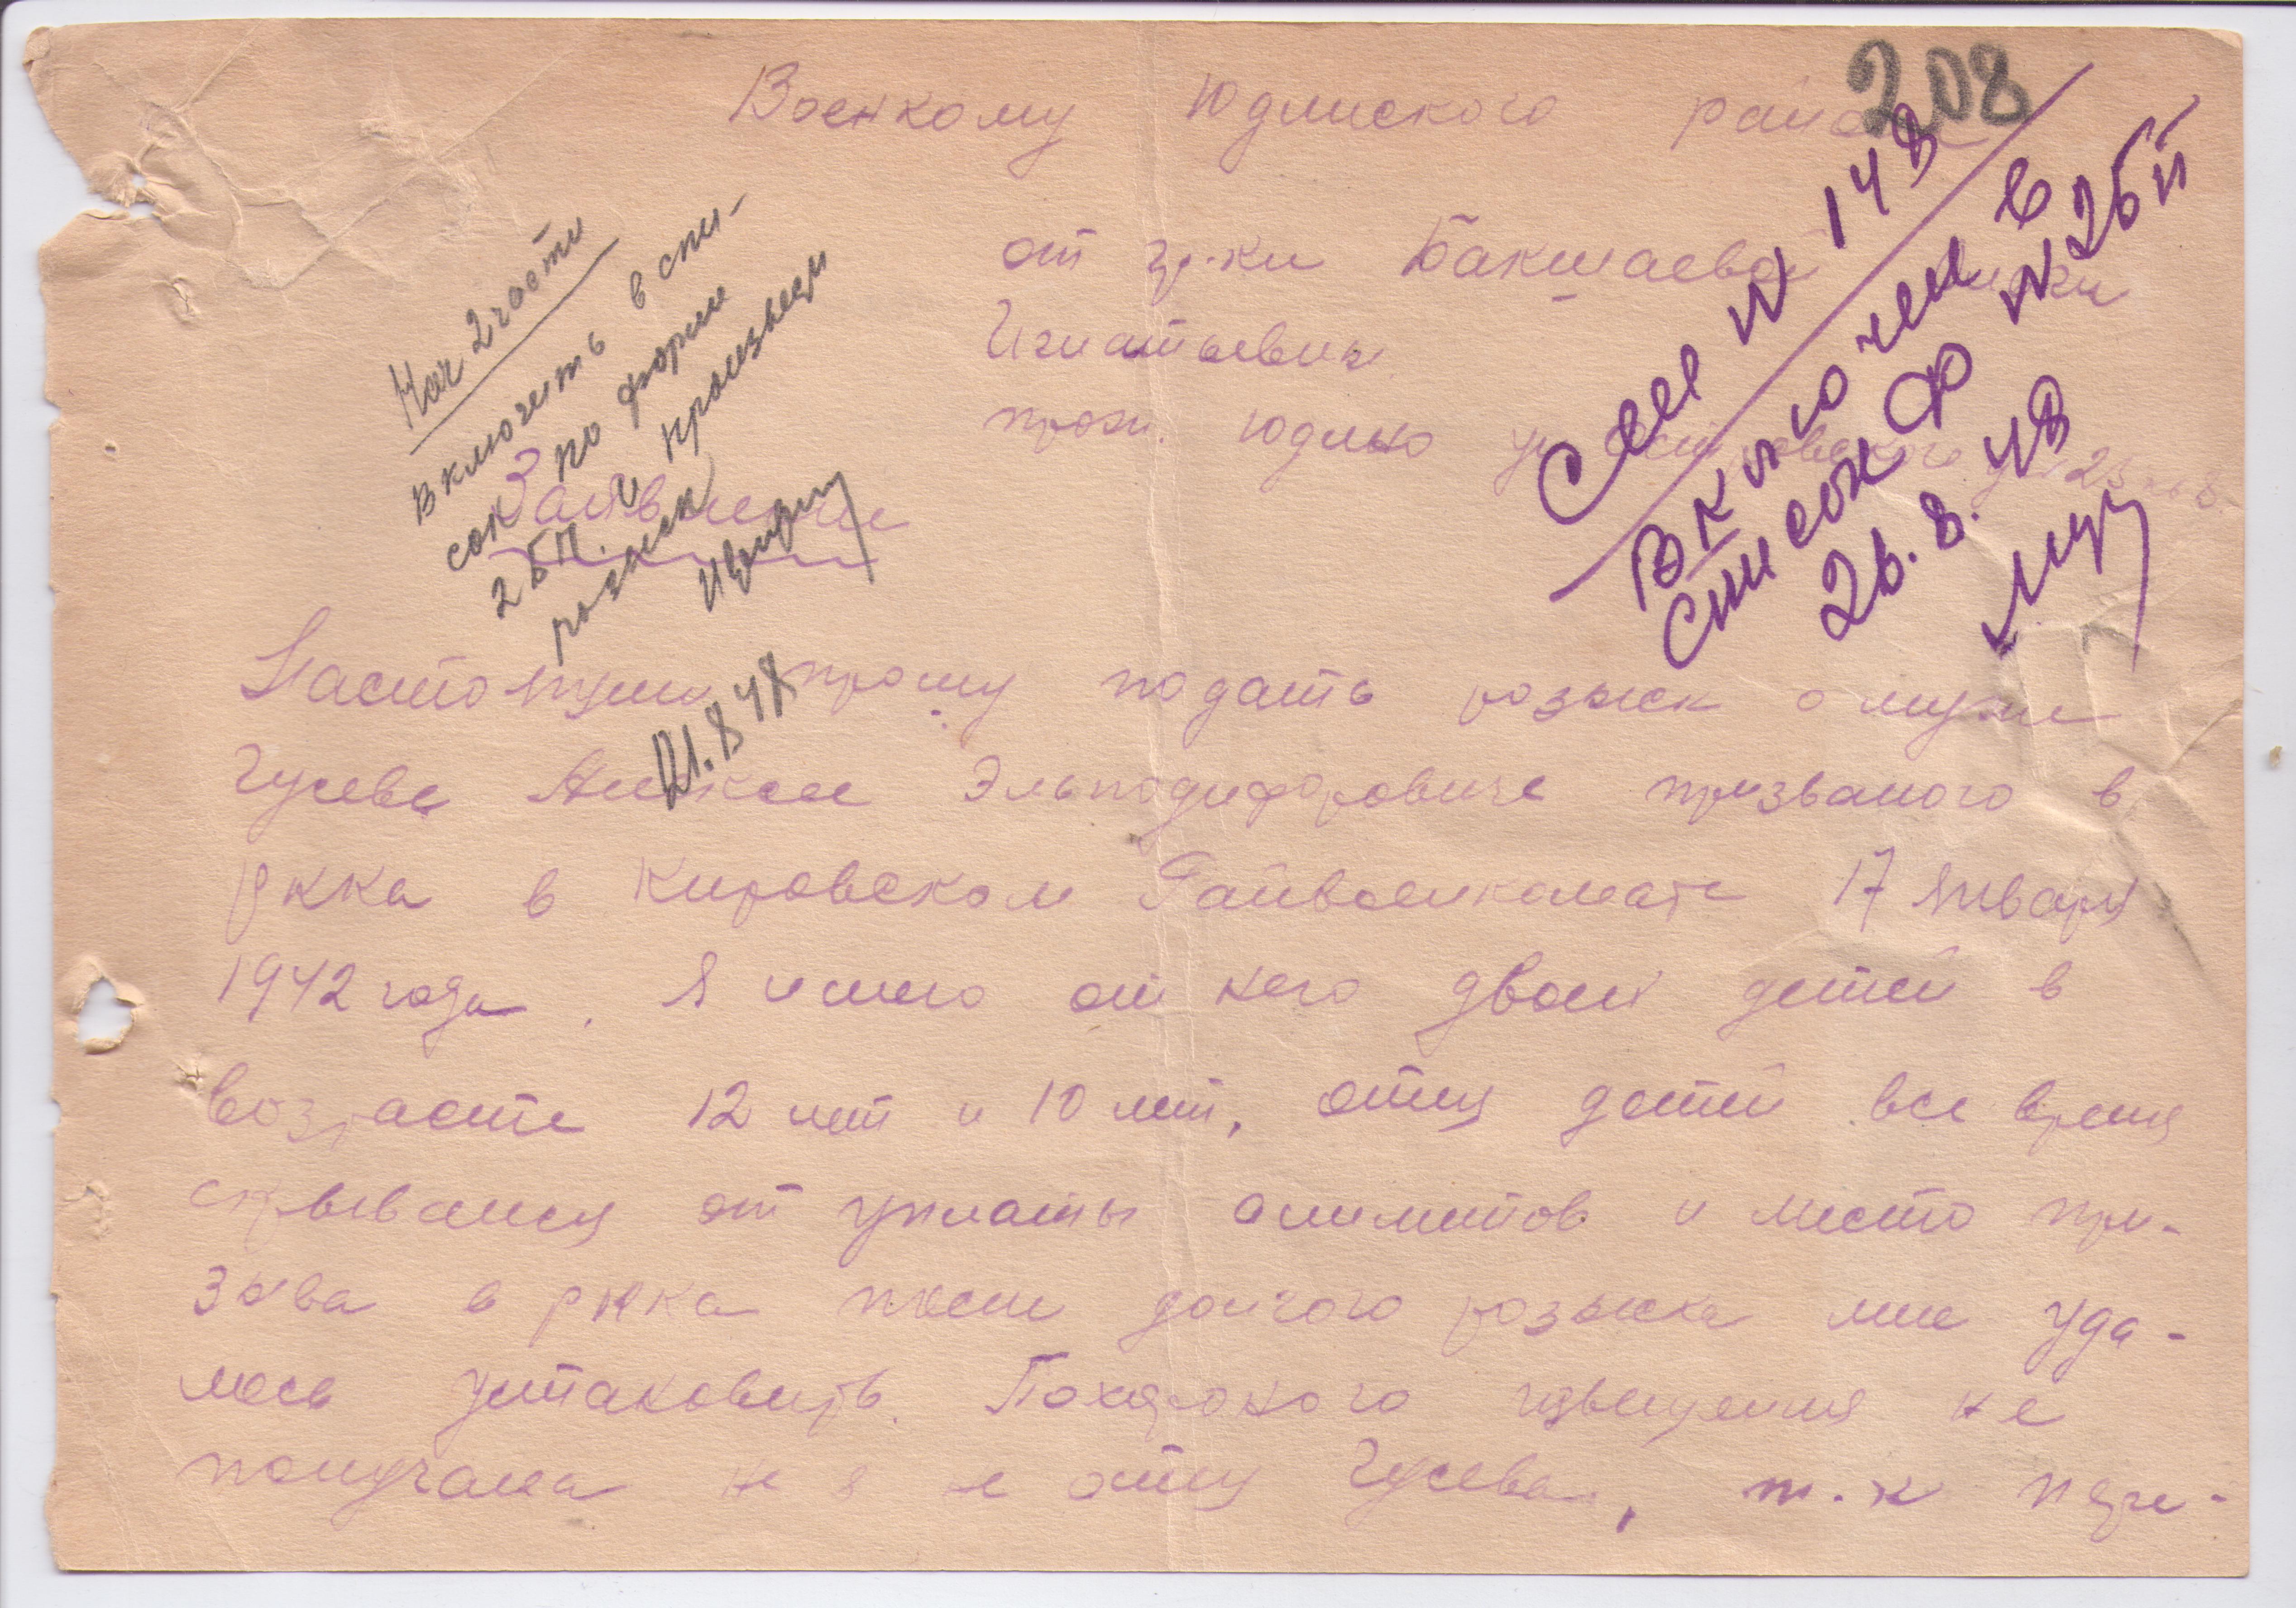 208
Военкому Юдинского района
от гр-ки Бакшаевой
Игнатьевны
прож. Юдино ул. 23 кв 8
Сп N 148
включен в
список Ф N 2БП
26.8.48
Нач 2 части
Включить в спи-
сок по форме
2БП. и произвести
розыск
21.8.48
Заявление
Настоящим прошу подать розыск о муже
Гусеве Алексее Эльподифоровиче призваного в
РККа в Кировском Райвоенкомате 17 Января
1942 года. Я имею от него двоих детей в
возрасте 12 лет и 10 лет, отец детей все время
скрывался от уплаты алиментов и место при-
зыва в ркка после долгого розыска мне уда-
лось установить. Похороного извещения не
получала не я не отец Гусева, т.к пере-